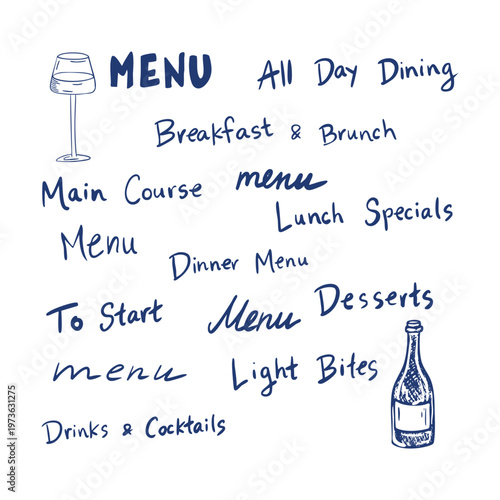 MENU
All Day Dining
Breakfast & Brunch
Main Course
menu
Lunch Specials
Menu
Dinner Menu
To Start
Menu
Desserts
menu
Light Bites
Drinks & Cocktails
Adobe Stock | #1973631275